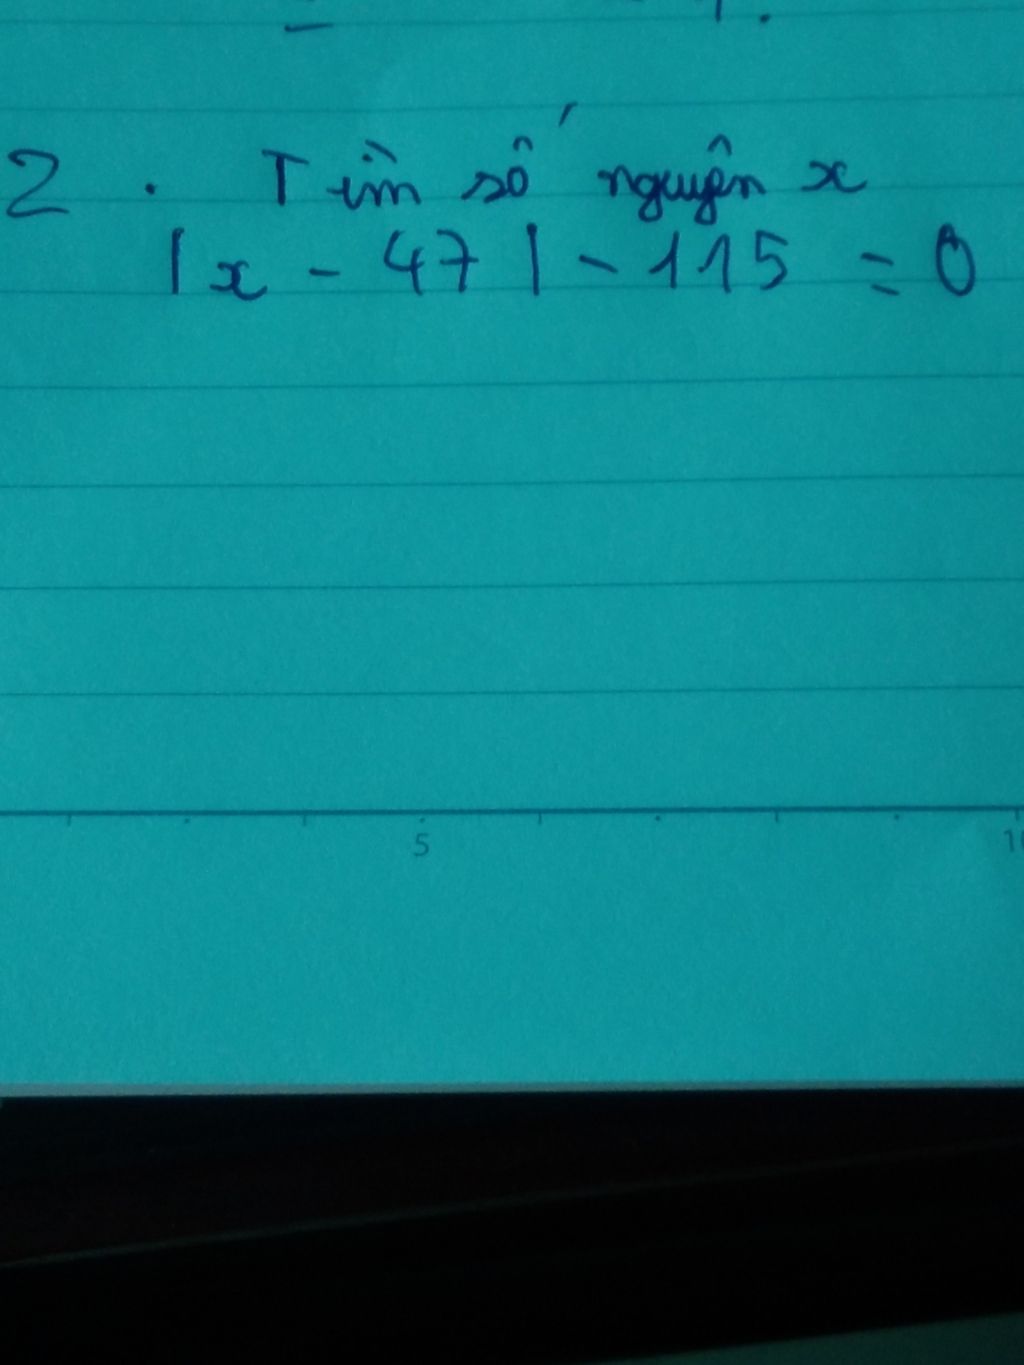 2. Tìm số nguyên x
|x - 47| - 115 = 0
5